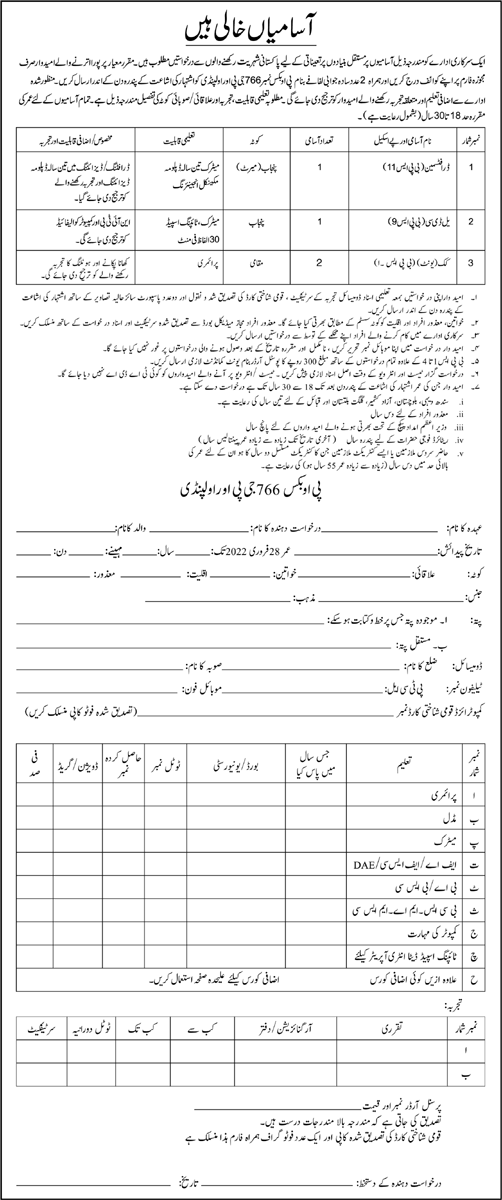 آسامیاں خالی ہیں
ایک سرکاری ادارے کو مندرجہ ذیل آسامیوں پر مستقل بنیادوں پر تعیناتی کے لیے پاکستانی شہریت رکھنے والوں سے درخواستیں مطلوب ہیں۔ مقررہ معیار پر پورا اترنے والے امیدوار صرف
مجوزہ فارم پر اپنے کوائف درج کریں اور ہمراہ 2 عدد سادہ جوابی لفافے بنام پی او بکس نمبر 766 جی پی او راولپنڈی کو اشتہار کی اشاعت کے پندرہ دن کے اندر ارسال کریں۔ منظور شدہ
ادارے سے اضافی تعلیم اور متعلقہ تجربہ رکھنے والے امیدوار کو ترجیح دی جائے گی۔ مطلوبہ تعلیمی قابلیت، تجربہ اور علاقائی/ صوبائی کوٹہ کی تفصیل مندرجہ ذیل ہے۔ تمام آسامیوں کے لئے عمر کی
مقررہ حد 18 تا 30 سال (بشمول رعایت ہے)۔
نمبر شمار | نام آسامی اور پے اسکیل | تعداد آسامی | کوٹہ | تعلیمی قابلیت | مخصوص/ اضافی قابلیت اور تجربہ
1 | ڈرافٹسمین (بی پی ایس 11) | 1 | پنجاب (میرٹ) | میٹرک تین سالہ ڈپلومہ مکینکل انجینئرنگ | ڈرافٹنگ/ ڈیزائننگ میں تین سالہ ڈپلومہ ڈیزائننگ اور تجربہ رکھنے والے کو ترجیح دی جائے گیا۔
2 | یل ڈی سی (بی پی ایس 9) | 1 | پنجاب | میٹرک، ٹائپنگ اسپیڈ 30 الفاظ فی منٹ | این آئی ٹی بی اور کمپیوٹر کوالیفائیڈ کو ترجیح دی جائے گی۔
3 | کک (یونٹ) (بی پی ایس ۔۱) | 2 | مقامی | پرائمری | کھانا پکانے اور ہوٹلنگ کا تجربہ رکھنے والے کو ترجیح دی جائے گی۔
۱۔ امیدوار اپنی درخواستیں بمعہ تعلیمی اسناد ڈومیسائل تجربہ کے سرٹیفکیٹ، قومی شناختی کارڈ کی تصدیق شدہ نقول اور دو عدد پاسپورٹ سائز حالیہ تصاویر کے ساتھ اشتہار کی اشاعت
کے پندرہ دن کے اندر ارسال کریں۔
۲۔ خواتین، معذور افراد اور اقلیت کو کوٹہ سسٹم کے مطابق بھرتی کیا جائے گا۔ معذور افراد مجاز میڈیکل بورڈ سے تصدیق شدہ سرٹیفکیٹ اور درخواست کے ساتھ منسلک کریں۔
۳۔ سرکاری ادارے میں کام کرنے والے افراد اپنے محکمے کے توسط سے درخواستیں ارسال کریں۔
۴۔ امیدوار درخواست میں اپنا موبائل نمبر تحریر کریں، نامکمل اور مقررہ تاریخ کے بعد وصول ہونے والی درخواستوں پر غور نہیں کیا جائے گا۔
۵۔ بی پی ایس 1 تا 4 کے علاوہ تمام درخواستوں کے ساتھ مبلغ 300 روپے کا پوسٹل آرڈر بنام یونٹ کمانڈنٹ لازمی ارسال کریں۔
۶۔ درخواست گزار ٹیسٹ اور انٹرویو کے وقت اصل اسناد لازمی پیش کریں۔ ٹیسٹ/ انٹرویو پر آنے والے امیدواروں کو کوئی ٹی اے ڈی اے نہیں دیا جائے گا۔
۷۔ امیدوار جن کی عمر اشتہار کی اشاعت کے پندرہ دن بعد تک 18 سے 30 سال تک ہے درخواست دے سکتا ہے۔
i. سندھ دیہی، بلوچستان، آزاد کشمیر، گلگت بلتستان اور قبائل کے لئے تین سال کی رعایت ہے۔
ii. معذور افراد کے لئے دس سال
iii. وزیر اعظم امداد پیکج کے تحت بھرتی ہونے والے امیدواروں کے لئے پانچ سال
iv. ریٹائرڈ فوجی حضرات کے لیے پندرہ سال (آخری تاریخ تک زیادہ سے زیادہ عمر پینتالیس سال)
v. حاضر سروس ملازمین یا ایسے کنٹریکٹ ملازمین جن کا کنٹریکٹ مسلسل دو سال کا ہو ان کے لئے عمر کی
بالائی حد میں دس سال (زیادہ سے زیادہ عمر 55 سال ہو) کی رعایت ہے۔
پی او بکس 766 جی پی او راولپنڈی
عہدہ کا نام: درخواست دہندہ کا نام: والد کا نام:
تاریخ پیدائش: عمر 28 فروری 2022 تک: سال: مہینے: دن:
کوٹہ: علاقائی: خواتین: اقلیت: معذور:
جنس: مذہب:
پتہ: ا۔ موجودہ پتہ جس پر خط و کتابت ہو سکے:
ب۔ مستقل پتہ:
ڈومیسائل: ضلع کا نام: صوبہ کا نام:
ٹیلیفون نمبر: پی ٹی سی ایل: موبائل فون:
کمپیوٹرائزڈ قومی شناختی کارڈ نمبر (تصدیق شدہ فوٹو کاپی منسلک کریں)
نمبر شمار | تعلیم | جس سال میں پاس کیا | بورڈ/ یونیورسٹی | ٹوٹل نمبر | حاصل کردہ نمبر | ڈویژن/ گریڈ | فی صد
ا | پرائمری
ب | مڈل
پ | میٹرک
ت | ایف اے/ ایف ایس سی/ DAE
ٹ | بی اے/ بی ایس سی
ث | بی سی ایس۔ ایم اے۔ ایم ایس سی
ج | کمپوٹر کی مہارت
چ | ٹائپنگ اسپیڈ ڈیٹا انٹری آپریٹر کیلئے
ح | علاوہ ازیں کوئی اضافی کورس اضافی کورس کیلئے علیحدہ صفحہ استعمال کریں۔
تجربہ:
نمبر شمار | تقرری | آرگنائزیشن/ دفتر | کب سے | کب تک | ٹوٹل دورانیہ | سرٹیفکیٹ
ا
ب
پرسنل آرڈر نمبر اور قیمت
تصدیق کی جاتی ہے کہ مندرجہ بالا مندرجات درست ہیں۔
قومی شناختی کارڈ کی تصدیق شدہ کاپی اور ایک عدد فوٹو گراف ہمراہ فارم ہذا منسلک ہے
درخواست دہندہ کے دستخط: تاریخ: